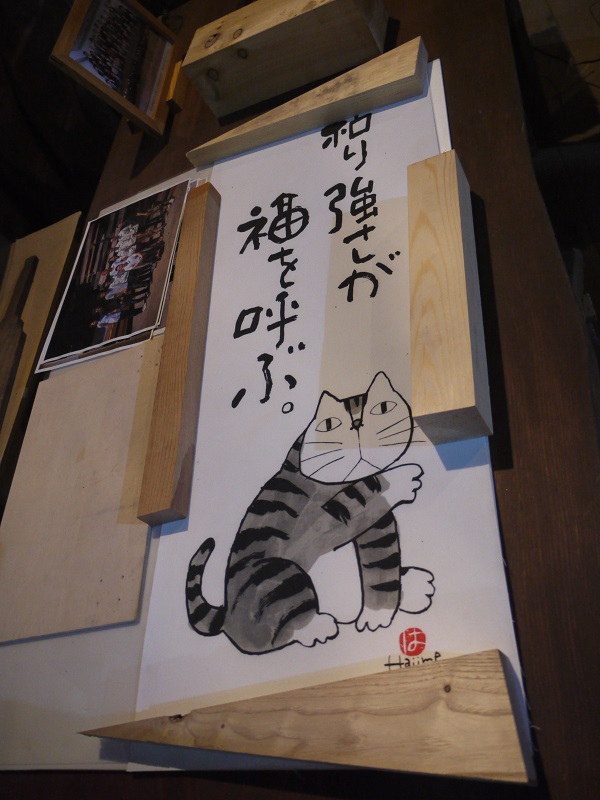 粘り強さが
福を呼ぶ。
は
Hajime